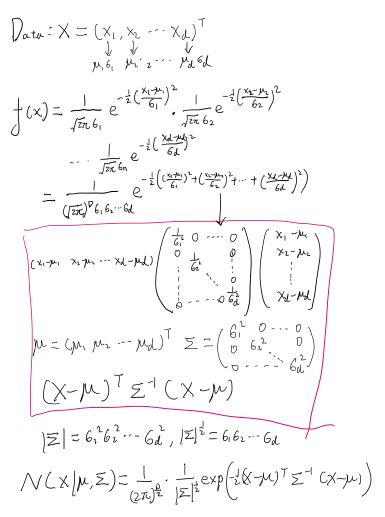 Data: X = (x₁, x₂ ⋯ x_d)ᵀ
↓ ↓ ↓
μ₁,6₁ μ₂,6₂ ⋯ μ_d 6_d
f(x) = \frac{1}{\sqrt{2π} 6₁} e^{-\frac{1}{2}(\frac{x₁-μ₁}{6₁})²} · \frac{1}{\sqrt{2π} 6₂} e^{-\frac{1}{2}(\frac{x₂-μ₂}{6₂})²}
⋯ \frac{1}{\sqrt{2π} 6_n} e^{-\frac{1}{2}(\frac{x_d-μ_d}{6_d})²}
= \frac{1}{(\sqrt{2π})^D 6₁6₂⋯6_d} e^{-\frac{1}{2}((\frac{x₁-μ₁}{6₁})²+(\frac{x₂-μ₂}{6₂})²+⋯+(\frac{x_d-μ_d}{6_d})²)}
(x₁-μ₁ x₂-μ₂ ⋯ x_d-μ_d) \begin{pmatrix} \frac{1}{6₁²} & 0 & ⋯ & 0 \\ 0 & \frac{1}{6₂²} & & 0 \\ ⋮ & & ⋱ & ⋮ \\ 0 & ⋯ & 0 & \frac{1}{6_d²} \end{pmatrix} \begin{pmatrix} x₁-μ₁ \\ x₂-μ₂ \\ ⋮ \\ x_d-μ_d \end{pmatrix}
μ = (μ₁ μ₂ ⋯ μ_d)ᵀ Σ = \begin{pmatrix} 6₁² & 0 & ⋯ & 0 \\ 0 & 6₂² & ⋱ & \\ 0 & ⋯ & & 6_d² \end{pmatrix}
(X-μ)ᵀ Σ⁻¹ (X-μ)
|Σ| = 6₁²6₂²⋯6_d², |Σ|^{\frac{1}{2}} = 6₁6₂⋯6_d
N(X|μ,Σ) = \frac{1}{(2π)^{\frac{D}{2}}} · \frac{1}{|Σ|^{\frac{1}{2}}} exp(-\frac{1}{2}(X-μ)ᵀ Σ⁻¹ (X-μ))